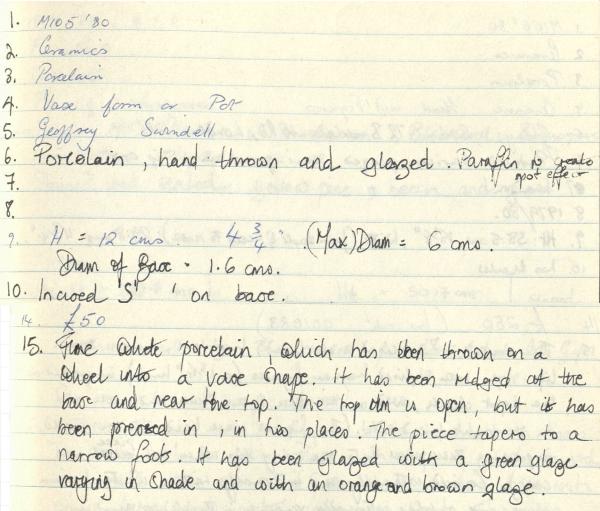 1. M105 '80
2. Ceramics
3. Porcelain
4. Vase form or Pot
5. Geoffrey Swindell
6. Porcelain, hand thrown and glazed. Paraffin to create
spot effect
7.
8.
9. H = 12 cms. 4 3/4". (Max) Diam = 6 cms.
Diam of Base = 1.6 cms.
10. Incised 'S' ' on base.
14. £50
15. Fine White porcelain, which has been thrown on a
wheel into a vase shape. It has been ridged at the
base and near the top. The top rim is open, but it has
been pressed in, in two places. The piece tapers to a
narrow foot. It has been glazed with a green glaze
varying in shade and with an orange and brown glaze.